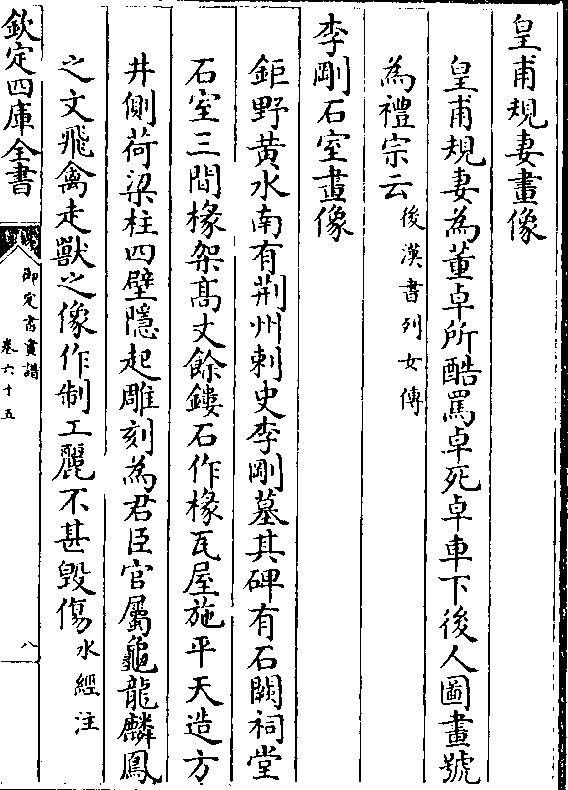 皇甫規妻畫像
皇甫規妻為董卓所酷罵卓死卓車下後人圖畫號
為禮宗云後漢書列女傳
李剛石室畫像
鉅野黄水南有荆州刺史李剛墓其碑有石闕祠堂
石室三間椽架髙丈餘鏤石作椽瓦屋施平天造方
井側荷梁柱四壁隱起雕刻為君臣官屬龜龍麟鳳
之文飛禽走獸之像作制工麗不甚毁傷水經注
欽定四庫全書
御定書畫譜
卷六十五
八